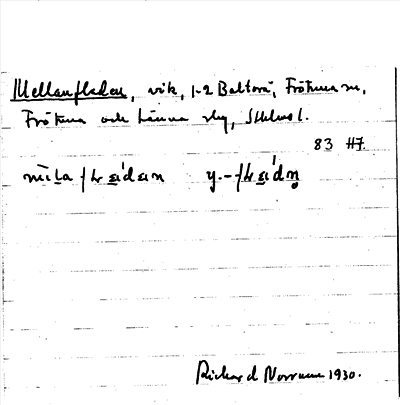 Mellanfladen, vik, 1-2 Baltorä, Frötuna sn,
Frötuna och Länna slg, Sthlms l.
83 H7
y.-
Richard Norrman 1930.